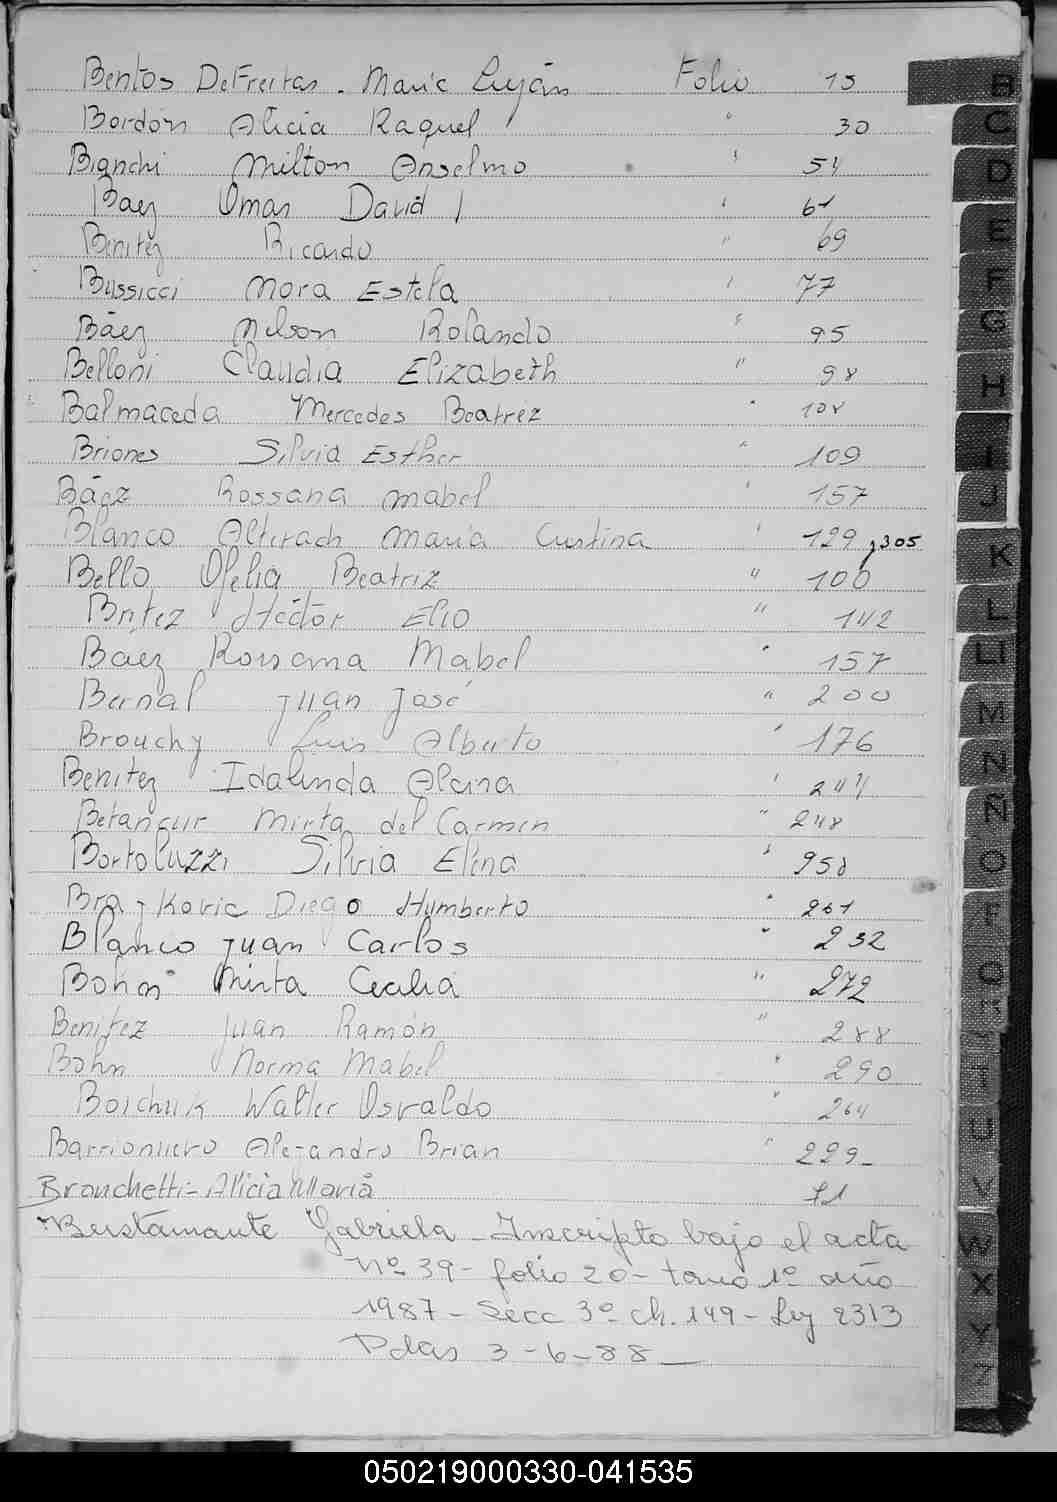 Bentos DeFreitas - Maria Luján Folio 15
Bordón Alicia Raquel " 30
Bianchi Milton Anselmo " 54
Baez Omar David " 61
Benitez Ricardo " 69
Bussicci Nora Estela " 77
Báez Nelson Rolando " 95
Belloni Claudia Elizabeth " 98
Balmaceda Mercedes Beatriz "
Briones Silvia Esther " 109
Báez Rossana Mabel " 157
Blanco Alterach Maria Cristina " 129 y 305
Bello Ofelia Beatriz " 100
Britez Héctor Elio " 142
Baez Rossana Mabel " 157
Bernal Juan José " 200
Brouchy Luis Alberto " 176
Benitez Idalinda Alcira " 244
Betancur Mirta del Carmen " 248
Bortoluzzi Silvia Elina " 258
Bra-jkovic Diego Humberto " 261
Blanco Juan Carlos " 232
Bohn Mirta Cecilia " 272
Benitez Juan Ramón " 288
Bohn Norma Mabel " 290
Boichuk Walter Osvaldo " 264
Barrionuevo Alejandro Brian " 229-
Bronchetti - Alicia Maria 71
Bustamante Gabriela - Inscripto bajo el acta
Nº 39 - folio 20 - tomo 1º año
1987 - Secc 3º ch. 149 - Ley 2313
Pdas 3-6-88
B
C
D
E
F
G
H
I
J
K
L
Ll
M
N
Ñ
O
P
Q
T
U
V
W
X
Y
Z
050219000330-041535